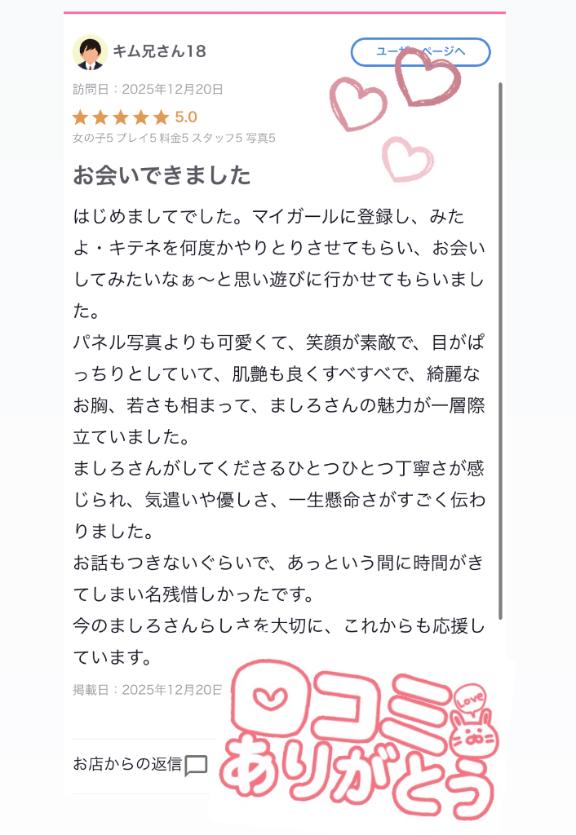 キム兄さん18
ユーザーページへ
訪問日：2025年12月20日
★★★★★ 5.0
女の子5 プレイ5 料金5 スタッフ5 写真5
お会いできました
はじめましてでした。マイガールに登録し、みた
よ・キテネを何度かやりとりさせてもらい、お会い
してみたいなぁ〜と思い遊びに行かせてもらいまし
た。
パネル写真よりも可愛くて、笑顔が素敵で、目がぱ
っちりとしていて、肌艶も良くすべすべで、綺麗な
お胸、若さも相まって、ましろさんの魅力が一層際
立ていました。
ましろさんがしてくださるひとつひとつ丁寧さが感
じられ、気遣いや優しさ、一生懸命さがすごく伝わ
りました。
お話もつきないぐらいで、あっという間に時間がき
てしまい名残惜しかったです。
今のましろさんらしさを大切に、これからも応援し
ています。
掲載日：2025年12月20日
Love
口コミ
ありがとう
お店からの返信